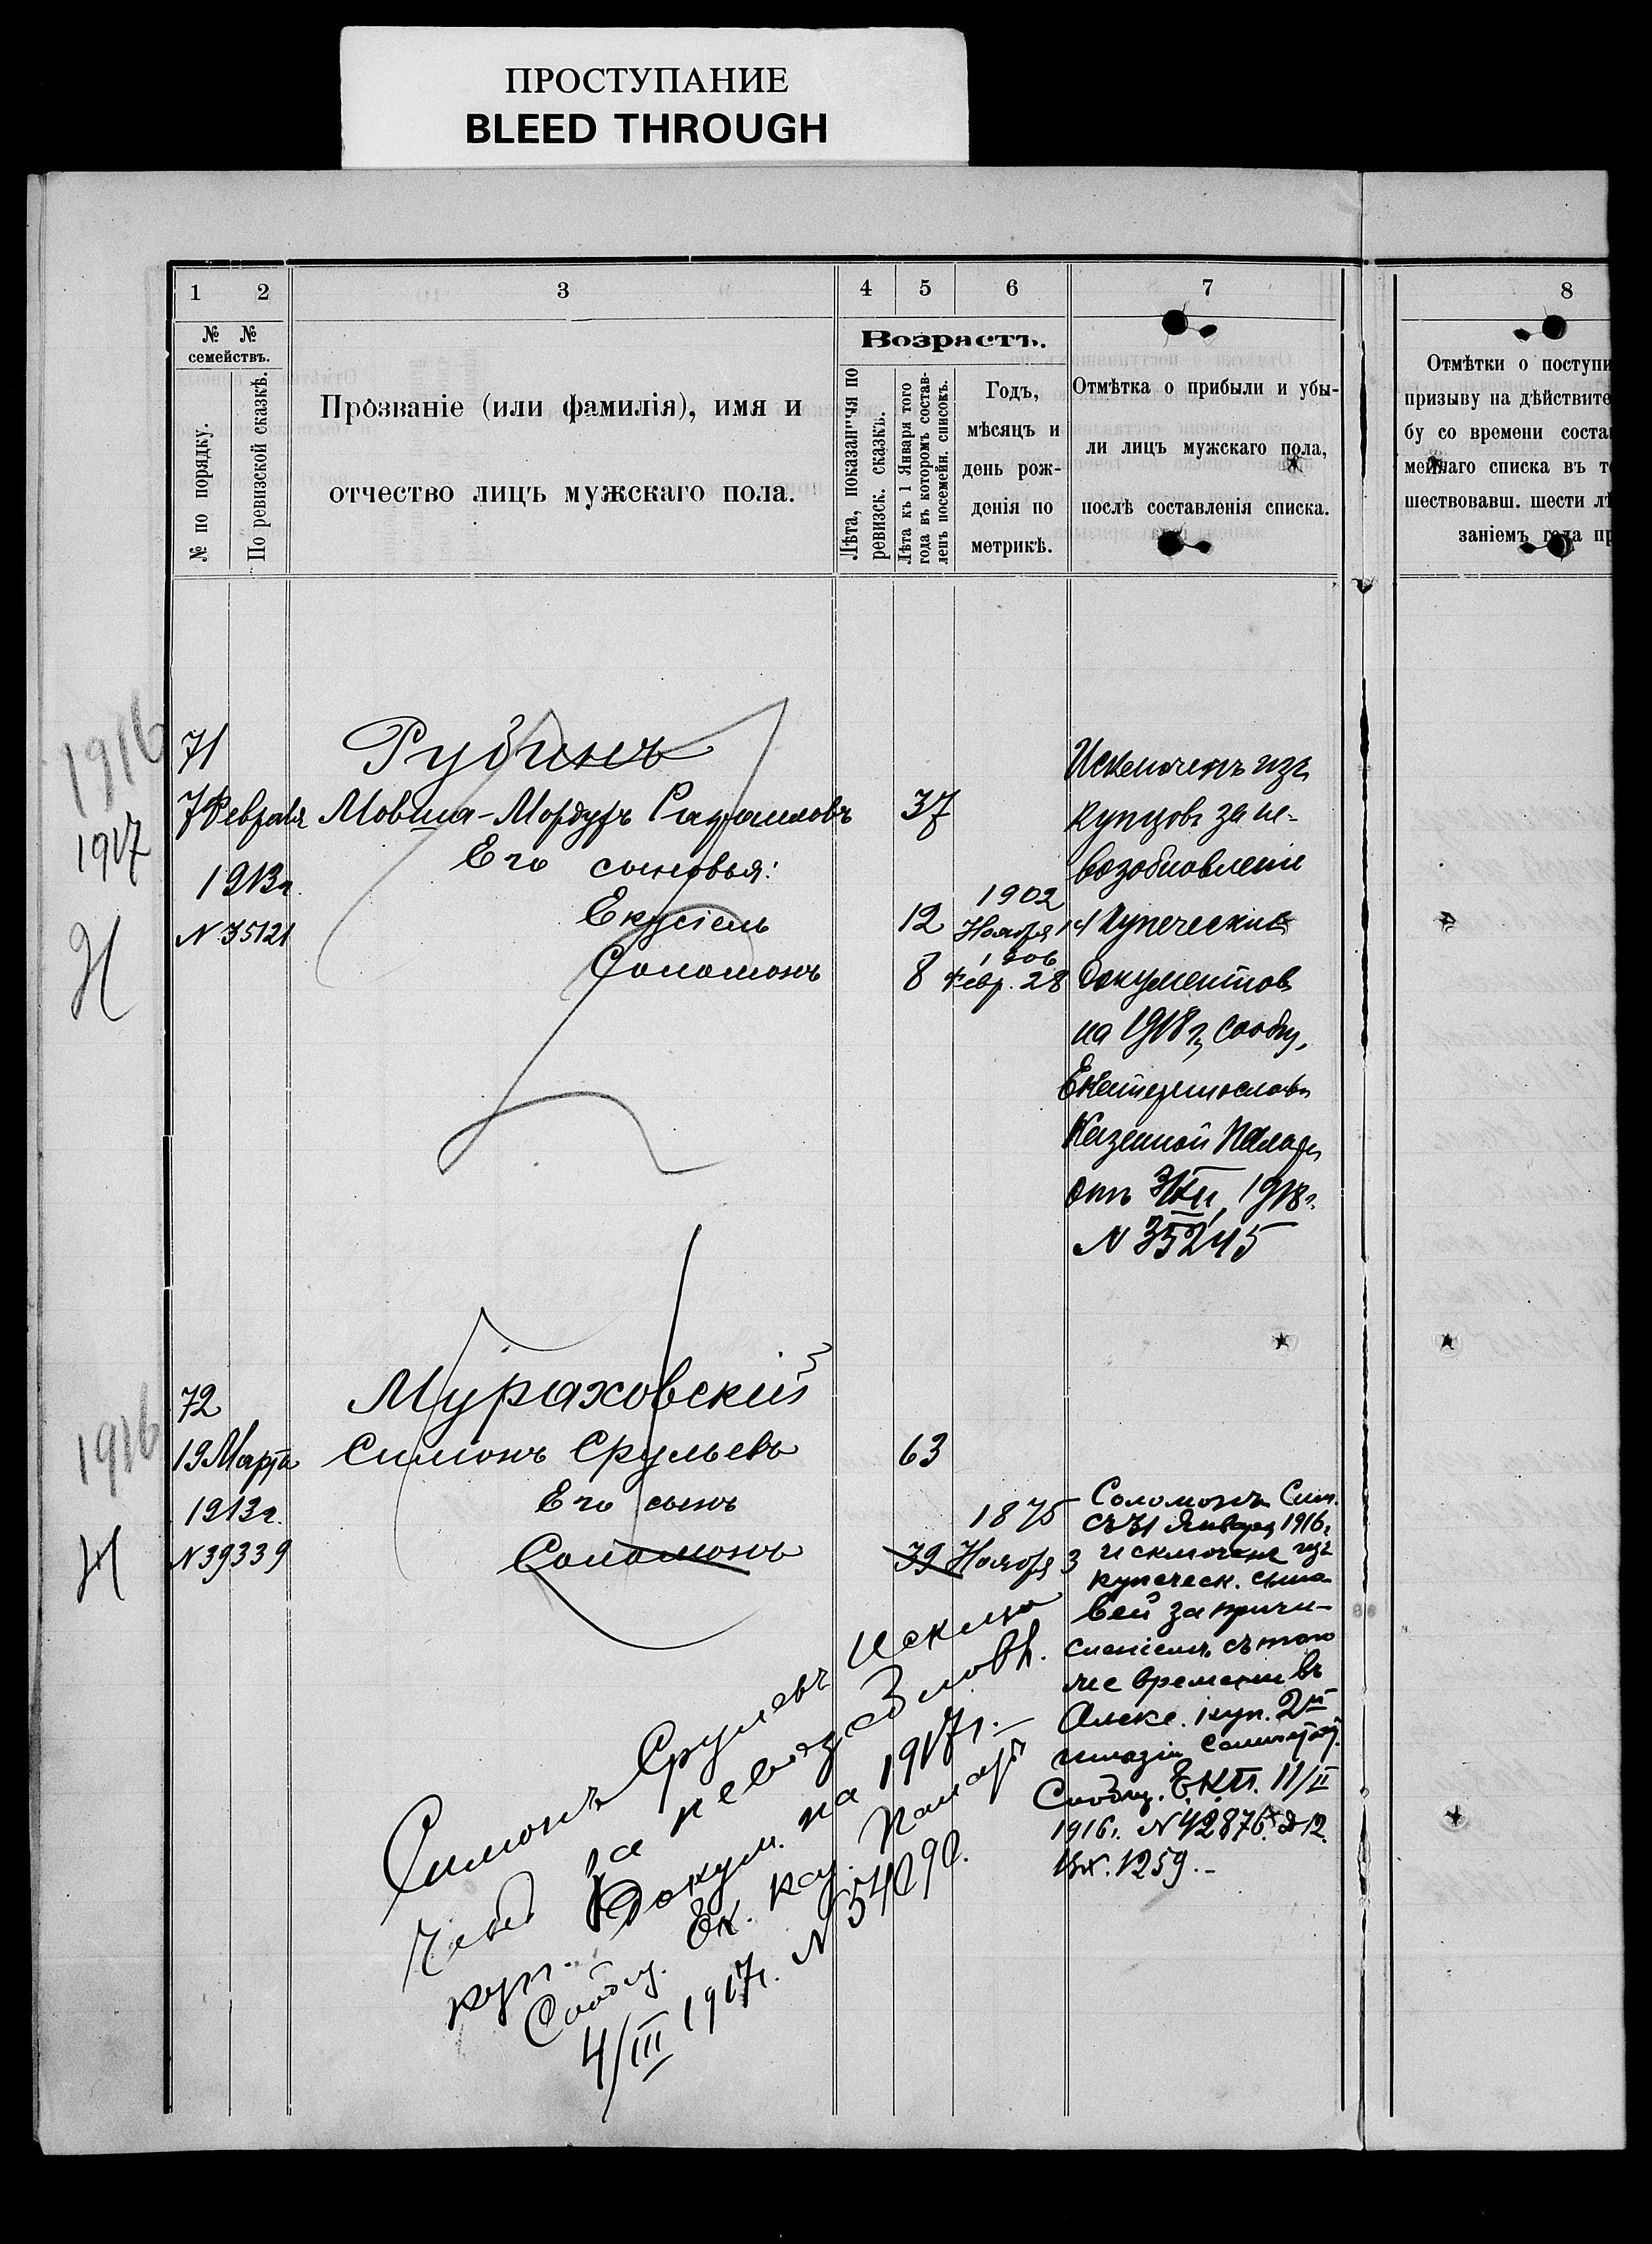 ПРОСТУПАНИЕ
BLEED THROUGH
1 2 3 4 5 6 7 8
№ № семействъ.
№ по порядку.
По ревизской сказкѣ.
Прозваніе (или фамилія), имя и
отчество лицъ мужскаго пола.
Возрастъ.
Лѣта, показанныя по
ревизск. сказкѣ.
Лѣта къ 1 Января того
года въ которомъ состав-
ленъ посемейн. списокъ.
Годъ,
мѣсяцъ и
день рож-
денія по
метрикѣ.
Отмѣтка о прибыли и убы-
ли лицъ мужскаго пола,
послѣ составленія списка.
Отмѣтки о поступи
призыву на дѣйствите
бу со времени соста
мейнаго списка въ т
шествовавш. шести лѣ
заніемъ года пр
1916
1917
И
71
7 Февраля
1913 г.
N 35121
Рубинъ
Мовша-Мордухъ Рафаиловъ
Его сыновья:
Екусіель
Соломонъ
37
12
8
1902
Ноября 14
1906
Февр. 28
Исключенъ изъ
купцовъ за не-
возобновленіе
купеческихъ
документовъ
на 1918 г, сообщ.
Екатеринослав.
Казенной Палаты
отъ 1918 г.
N 35245
1916
И
72
19 Марта
1913 г.
N 39339
Мураховскій
Симонъ Срульевъ
Его сынъ
Соломонъ
63
39
1875
Ноября 3
Соломонъ Сим.
съ 1 Января 1916 г
исключенъ изъ
купеческ. сыно-
вей за причи-
сленіемъ съ того
же времени въ
Алекс. куп. 2й
гильдіи
Сообщ. Е.К.П. 11/II
1916 г. N 42876.
Вх. 1259.-
Симонъ Срулевъ исклю
ченъ за невозобновл.
куп. докум. на 1917 г.-
Сообщ. Ек. Каз. Палаты
4/III 1917 г. N